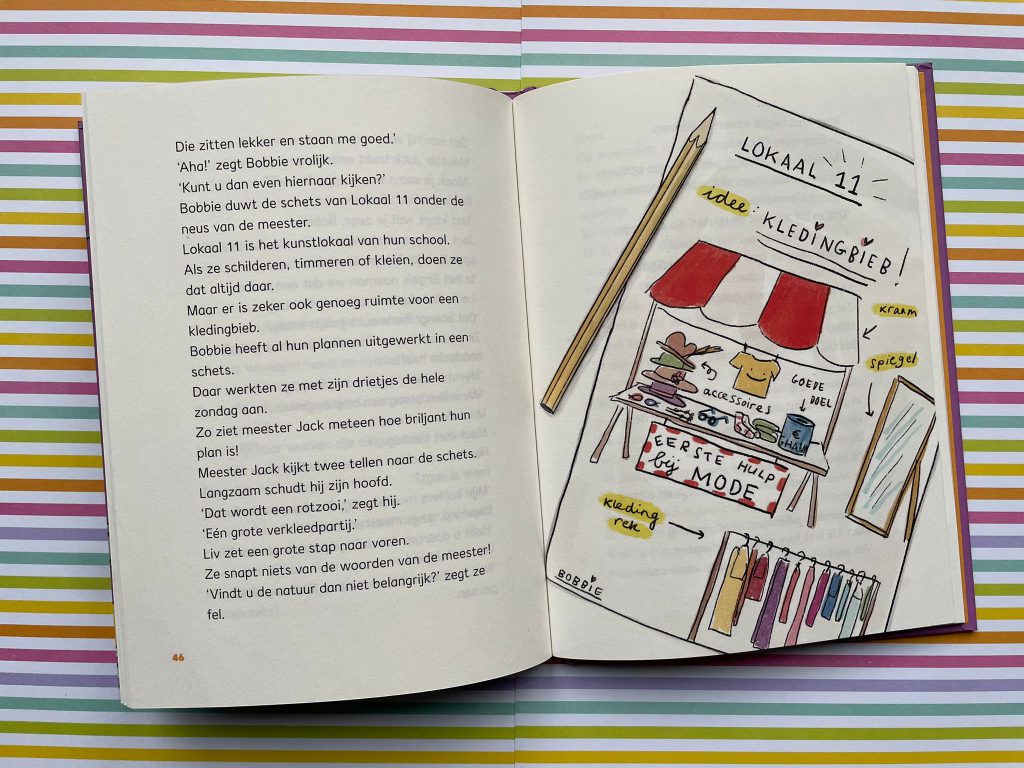 Die zitten lekker en staan me goed.’
‘Aha!’ zegt Bobbie vrolijk.
‘Kunt u dan even hiernaar kijken?’
Bobbie duwt de schets van Lokaal 11 onder de
neus van de meester.
Lokaal 11 is het kunstlokaal van hun school.
Als ze schilderen, timmeren of kleien, doen ze
dat altijd daar.
Maar er is zeker ook genoeg ruimte voor een
kledingbieb.
Bobbie heeft al hun plannen uitgewerkt in een
schets.
Daar werkten ze met zijn drietjes de hele
zondag aan.
Zo ziet meester Jack meteen hoe briljant hun
plan is!
Meester Jack kijkt twee tellen naar de schets.
Langzaam schudt hij zijn hoofd.
‘Dat wordt een rotzooi,’ zegt hij.
‘Eén grote verkleedpartij.’
Liv zet een grote stap naar voren.
Ze snapt niets van de woorden van de meester!
‘Vindt u de natuur dan niet belangrijk?’ zegt ze
fel.
46
LOKAAL 11
idee: KLEDINGBIEB!
kraam
spiegel
accessoires
GOEDE
DOEL
€
EERSTE HULP
bij MODE
kleding
rek
BOBBIE